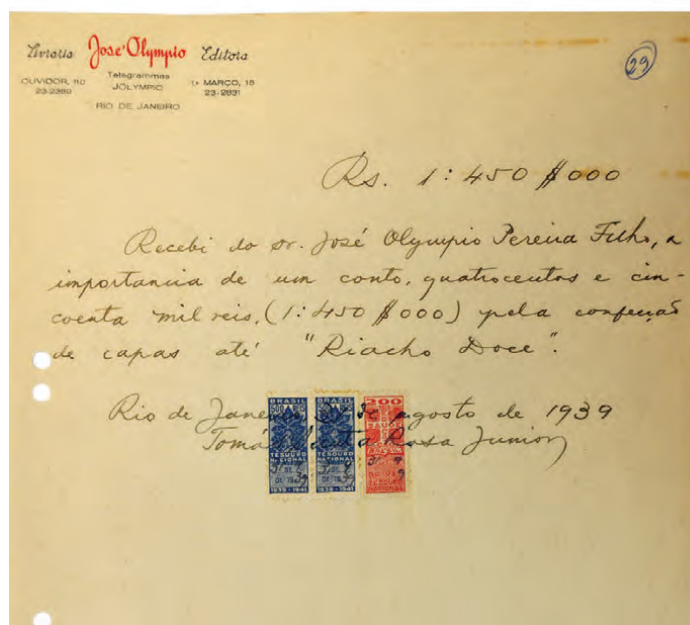 Livraria José Olympio Editora
OUVIDOR, 110
23-2389
Telegrammas
JOLYMPIO
1º MARÇO, 18
23-2831
RIO DE JANEIRO
29
Rs. 1:450$000
Recebi do sr. José Olympio Pereira Filho, a
importancia de um conto, quatrocentos e cin-
coenta mil reis, (1:450$000) pela confecção
de capas até "Riacho Doce".
Rio de Janeiro, de agosto de 1939
Tomás Santa Rosa Junior
BRASIL
TESOURO
NACIONAL
1939-1941
BRASIL
TESOURO
NACIONAL
1939-1941
200
TESOURO
NACIONAL